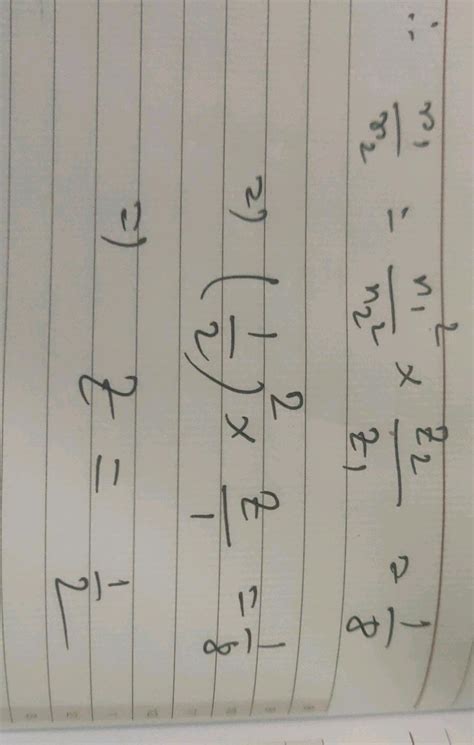 ∴ r₁/r₂ = n₁²/n₂² × z₂/z₁ = 1/8
⇒ (1/2)² × z/1 = 1/8
⇒ z = 1/2